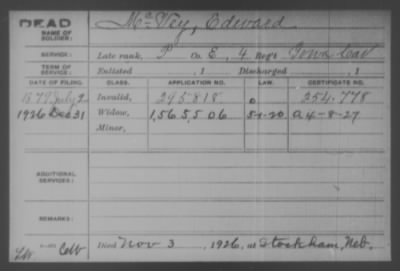 DEAD
NAME OF SOLDIER: McVey, Edward
SERVICE: Late rank, P Co. E, 4 Reg't Iowa Cav
TERM OF SERVICE: Enlisted 1 Discharged 1
DATE OF FILING. CLASS. APPLICATION NO. LAW. CERTIFICATE NO.
1879 July 2 Invalid, 295818 254.778
1926 Dec 31 Widow, 1,565,506 5-1-20 A 4-8-27
Minor,
ADDITIONAL SERVICES:
REMARKS:
Died Nov 3, 1926, at Stockham, Neb.